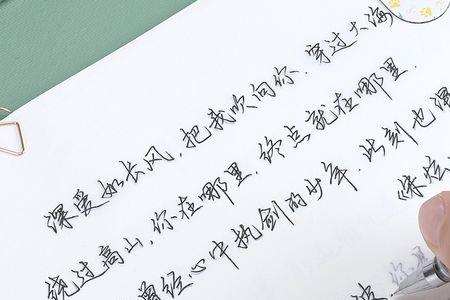 深爱如长风，把我吹向你．穿过大海
绕过高山，你在哪里，终点就在哪里．
曾经心中执剑的少年．此刻也
《
你